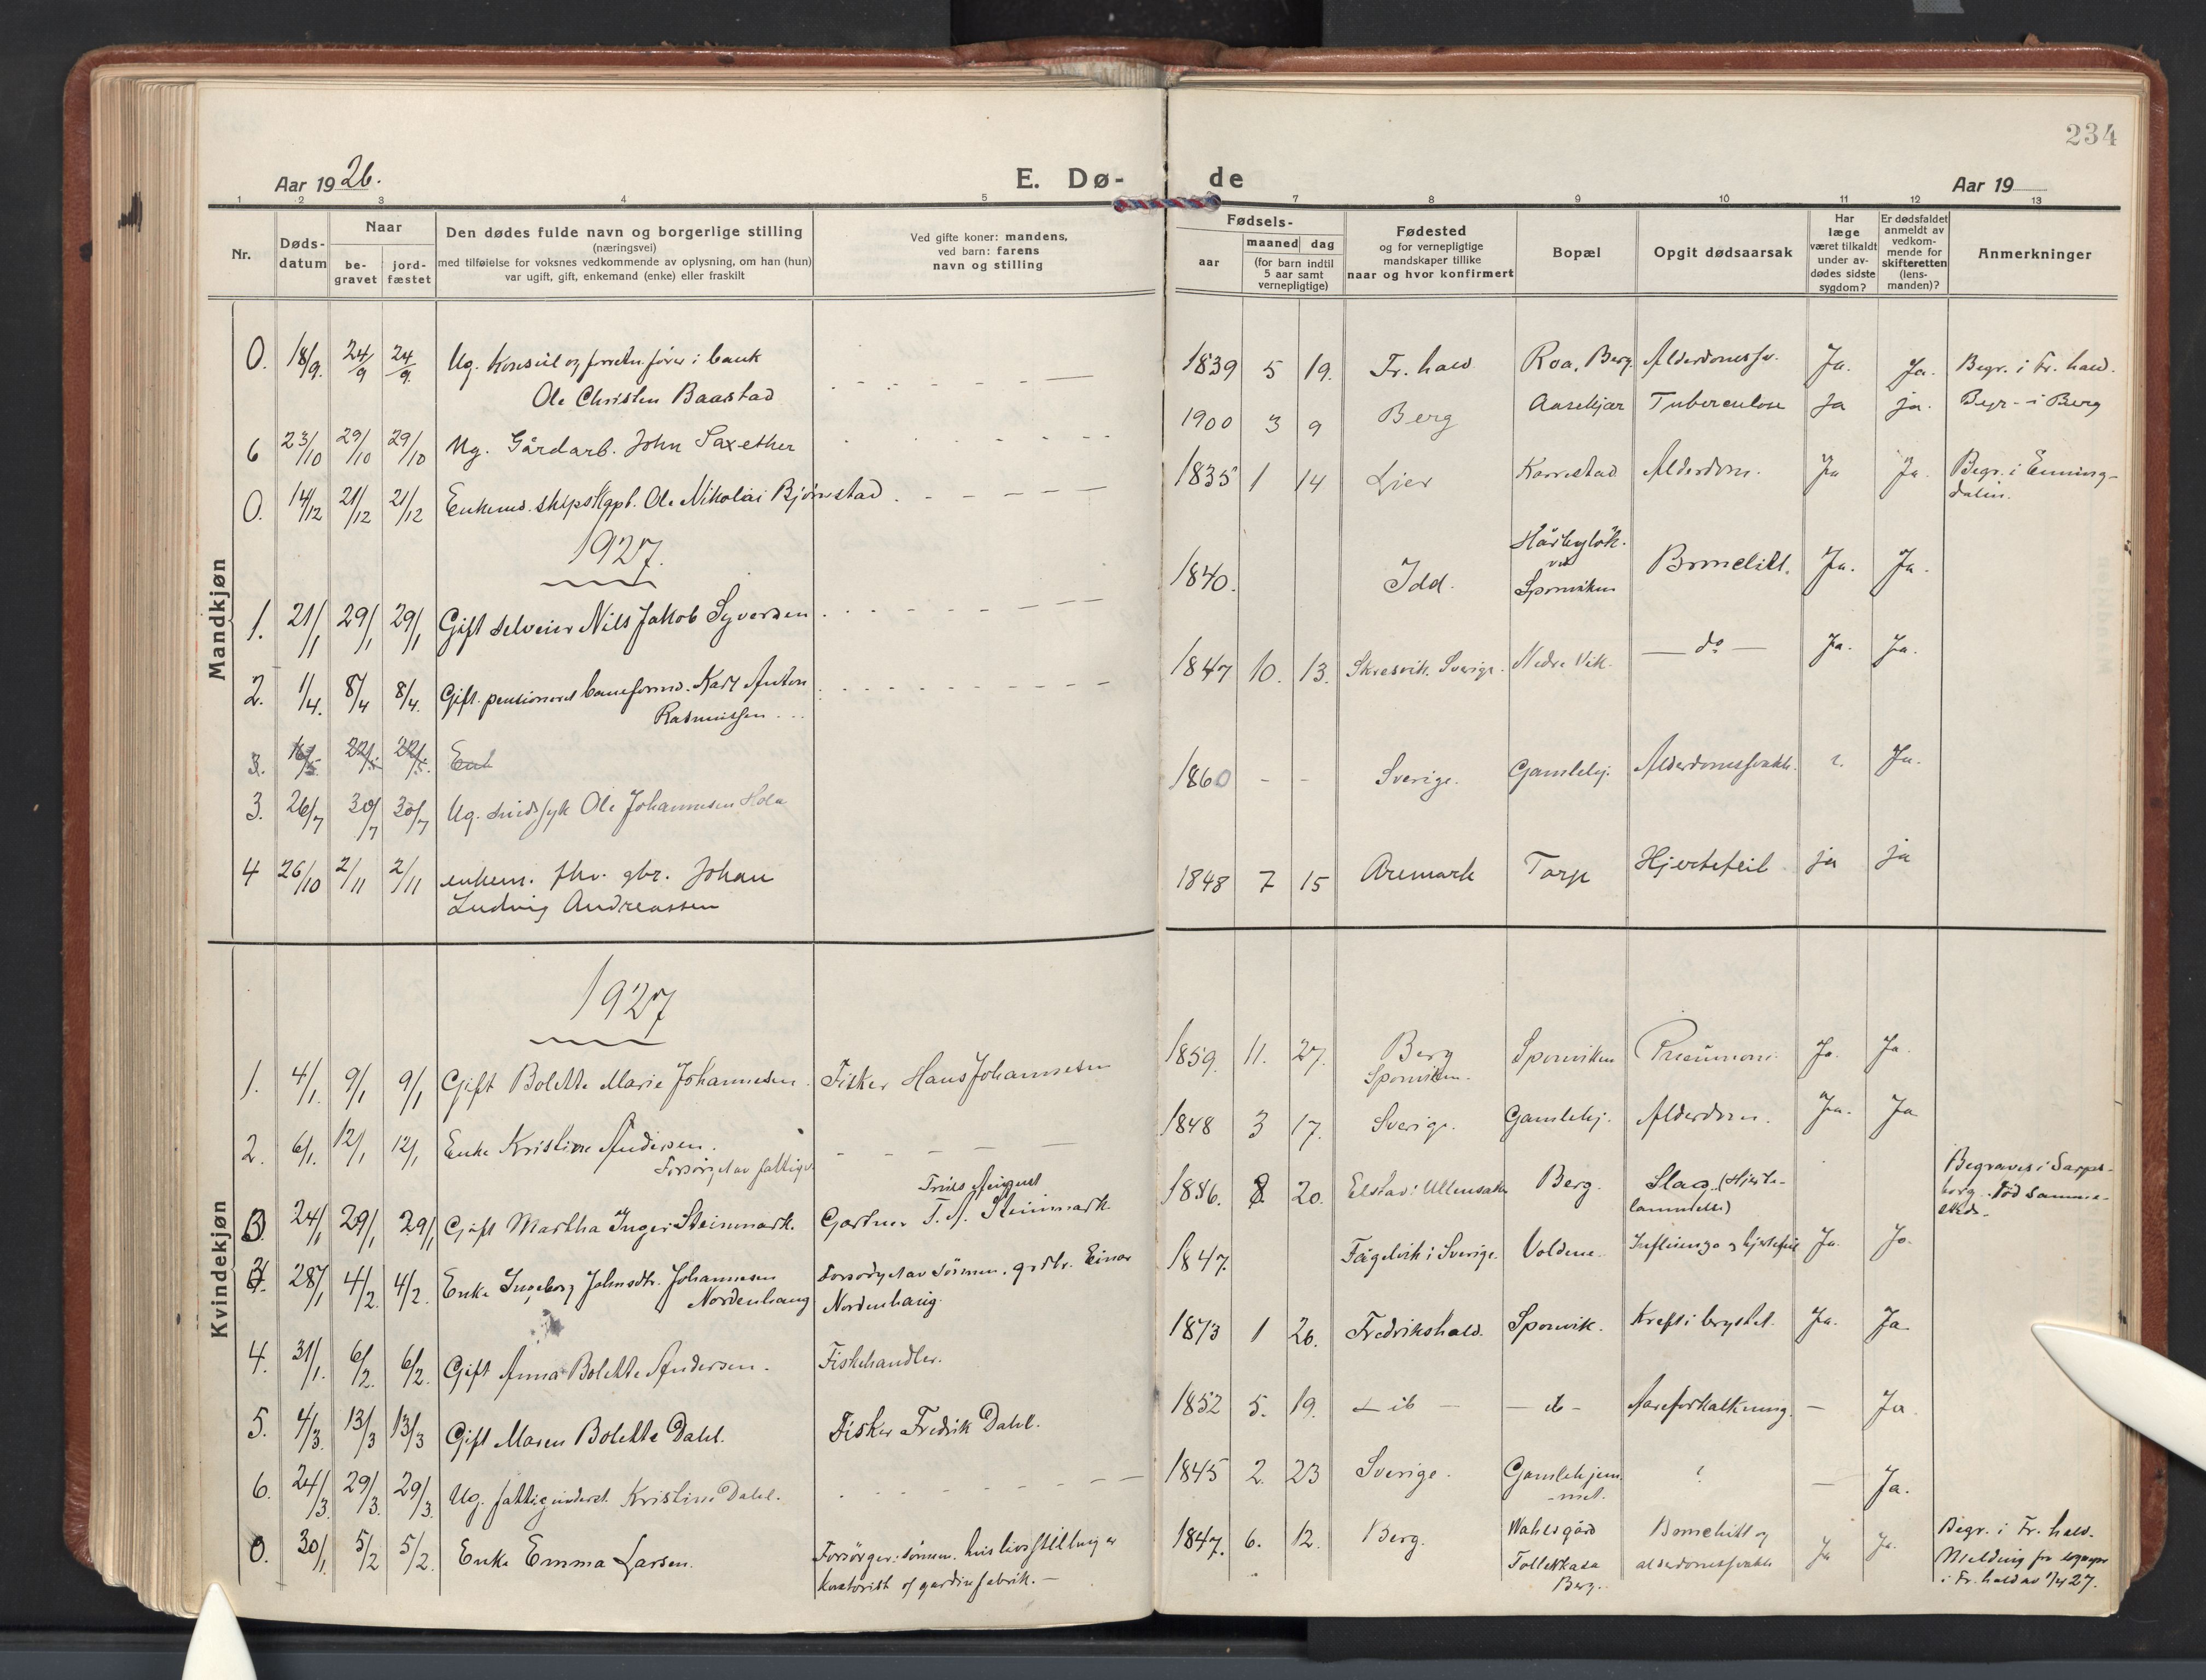 234
Aar 1926.
E. Dø-
de
Aar 19
1 2 3 4 5 7 8 9 10 11 12 13
Nr.
Døds-
datum
Naar
be-
gravet
jord-
fæstet
Den dødes fulde navn og borgerlige stilling
(næringsvei)
med tilføielse for voksnes vedkommende av oplysning, om han (hun)
var ugift, gift, enkemand (enke) eller fraskilt
Ved gifte koner: mandens,
ved barn: farens
navn og stilling
Fødsels-
aar
maaned dag
(for barn indtil
5 aar samt
vernepligtige)
Fødested
og for vernepligtige
mandskaper tillike
naar og hvor konfirmert
Bopæl
Opgit dødsaarsak
Har
læge
været tilkaldt
under av-
dødes sidste
sygdom?
Er dødsfaldet
anmeldt av
vedkom-
mende for
skifteretten
(lens-
manden)?
Anmerkninger
Mandkjøn
0. 18/9. 24/9 24/9. Ug. Konsul og i bank 1839 5 19. Fr. hald Roa, Berg. Ja. Ja. Begr. i Fr. hald.
Ole Christen Baastad
6 23/10 29/10 29/10 Ug. Gårdarb. John Saxether 1900 3 9 Berg Aasekjær Tuberculose Ja ja. Begr. i Berg
0. 14/12 21/12 21/12 Enkemd. Ole Nikolai Bjørnstad 1835 1 14 Lier Karrestad Alderdom. Ja Ja. Begr. i Enning-
dalen.
1927.
1. 21/1 29/1 29/1 Gift selveier Nils Jakob Syversen 1840. Idd.
ved
Sponviken Ja. Ja.
2. 1/4. 8/4 8/4. Gift. pensioneret baneformd. Karl Anton 1847 10. 13. Skresvik. Sverige. Nedre Vik. — do — Ja. Ja.
Rasmussen
3. 22/5 22/5. Enk
3. 26/7 30/7 30/7 Ug. sindssyk Ole Johannesen Hola 1860 - - Sverige. Gamlehj. Alderdomssvakh. ?. Ja.
4 26/10 2/11 2/11 enkem. fhv. gbr. Johan 1848 7 15 Aremark Torp Hjertefeil ja ja
Ludvig Andreassen
Kvindekjøn
1927
1. 4/1. 9/1 9/1 Gift Bolette Marie Johannesen. Fisker Hans Johannesen 1859. 11. 27. Berg Sponviken Pneumoni Ja. Ja.
Sponviken.
2. 6/1. 12/1 12/1 Enke Kristine Andersen. 1848 3 17. Sverige. Gamlehj. Alderdom. Ja. Ja
Forsørget av fattigv.
3. 24/1 29/1 29/1 Gift Martha Inger Steinmark. Gartner T. A. Steinmark 1856. 8. 20. Berg. Slag. (Hjerte-
lammelse) Begraves i Sarps-
borg. Død samme-
steds.
28/1 4/2 4/2. Enke Ingeborg Johnsdtr. Johannesen Forsørget av sønnen. grdbr. Einar 1847. Fågelvik i Sverige. Voldene. Influenza og hjertefeil Ja. Ja.
Nordenhaug Nordenhaug.
4. 31/1. 6/2. 6/2. Gift Anna Bolette Andersen. Fiskehandler. 1873 1 26. Fredrikshald. Sponvik. Kreft i brystet. Ja. Ja
5. 4/3. 13/3 13/3 Gift Maren Bolette Dahl. Fisker Fredrik Dahl. 1852 5. 19. — do - Aareforkalkning. — Ja.
6. 24/3. 29/3. 29/3. Ug. fattigunderst. Kristine Dahl. 1845 2. 23 Sverige. Gamlehjem-
met. ? — Ja.
0. 30/1. 5/2 5/2. Enke Emma Larsen. Forsørger: sønnen. hvis livsstilling er 1847. 6. 12. Berg. Wahlsgård Bronchitt og Ja Ja. Begr. i Fr. hald.
kontorist gardinfabrik. — Tollekasa alderdomssvakh. Melding fr. sognepr
Berg. i Fr. hald av 1/4 27.